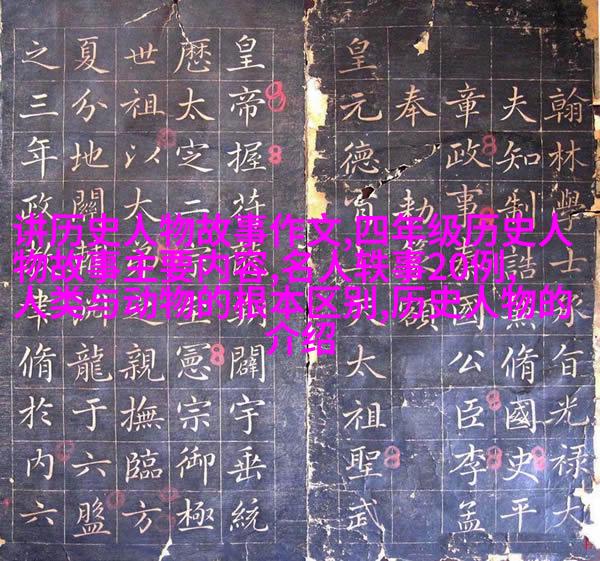 讲历史人物故事作文,四年级历史人
物故事主要内容,名人轶事20例,
人类与动物的根本区别,历史人物的
介绍
翰林學士承旨光祿大
夫知制誥兼脩國史平
章政事國公臣李孟
奉勅
皇元德太祖聖武
皇帝握符闢宇垂統
歷太定二憲宗御極
世祖以親撫臨方
夏分地關龍于六盤
之三年政脩於內六